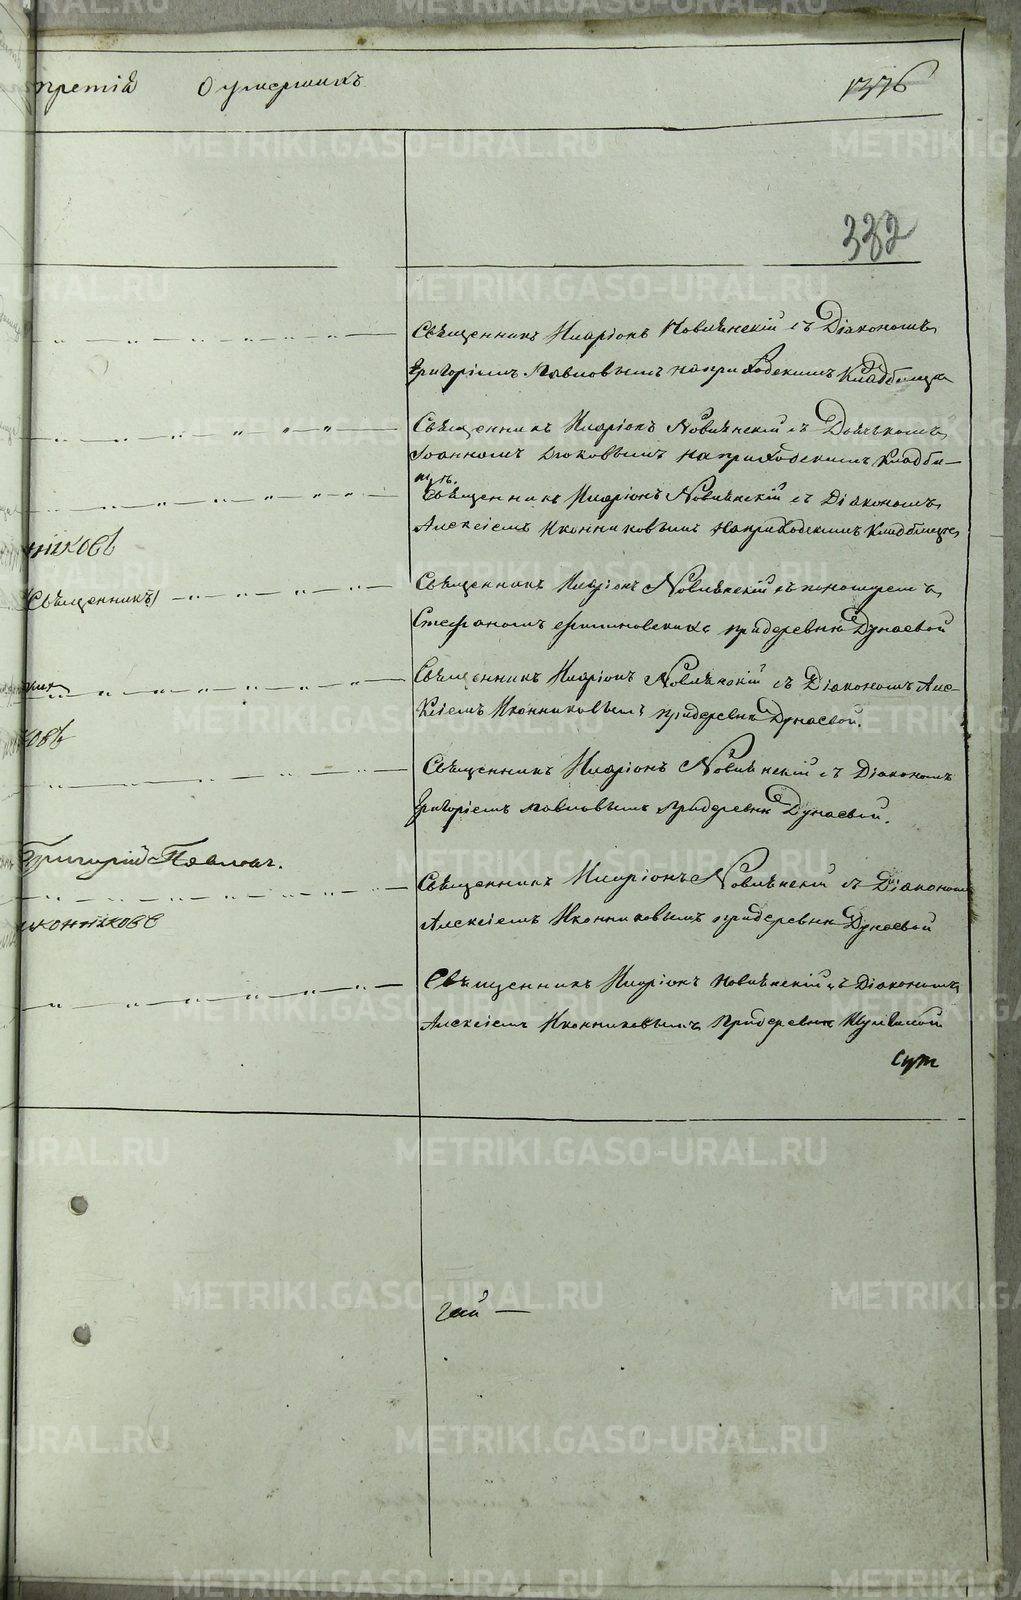 третія О умершихъ 1376
332
Священникъ Иларіонъ Новлѣнскій съ Діакономъ
Григоріемъ Павловымъ на приходскимъ Кладбище
Священникъ Иларіонъ Новлѣнскій съ Дьячькомъ
Іоанномъ на приходскимъ Кладби–
щѣ.
Священникъ Иларіонъ Новлѣнскій съ Діакономъ
Алексіемъ Иконниковымъ на приходскимъ Кладбище
никовъ
Священникъ Иларіонъ Новлѣнскій съ пономремъ
(Священникъ)
Стефаномъ при деревнѣ Дунаевой
Священникъ Иларіонъ Новлѣнскій съ Діакономъ Але–
ксіемъ Иконниковымъ при деревнѣ Дунаевой.
овъ
Священникъ Иларіонъ Новлѣнскій съ Діакономъ
Григоріемъ Павловымъ при деревнѣ Дунаевой.
Григорій Павловъ.
Священникъ Иларіонъ Новлѣнскій съ Діакономъ
Алексіемъ Иконниковымъ при деревнѣ Дунаевой
иконниковъ
Священникъ Иларіонъ Новлѣнскій съ Діакономъ
Алексіемъ Иконниковымъ при деревнѣ
METRIKI.GASO-URAL.RU